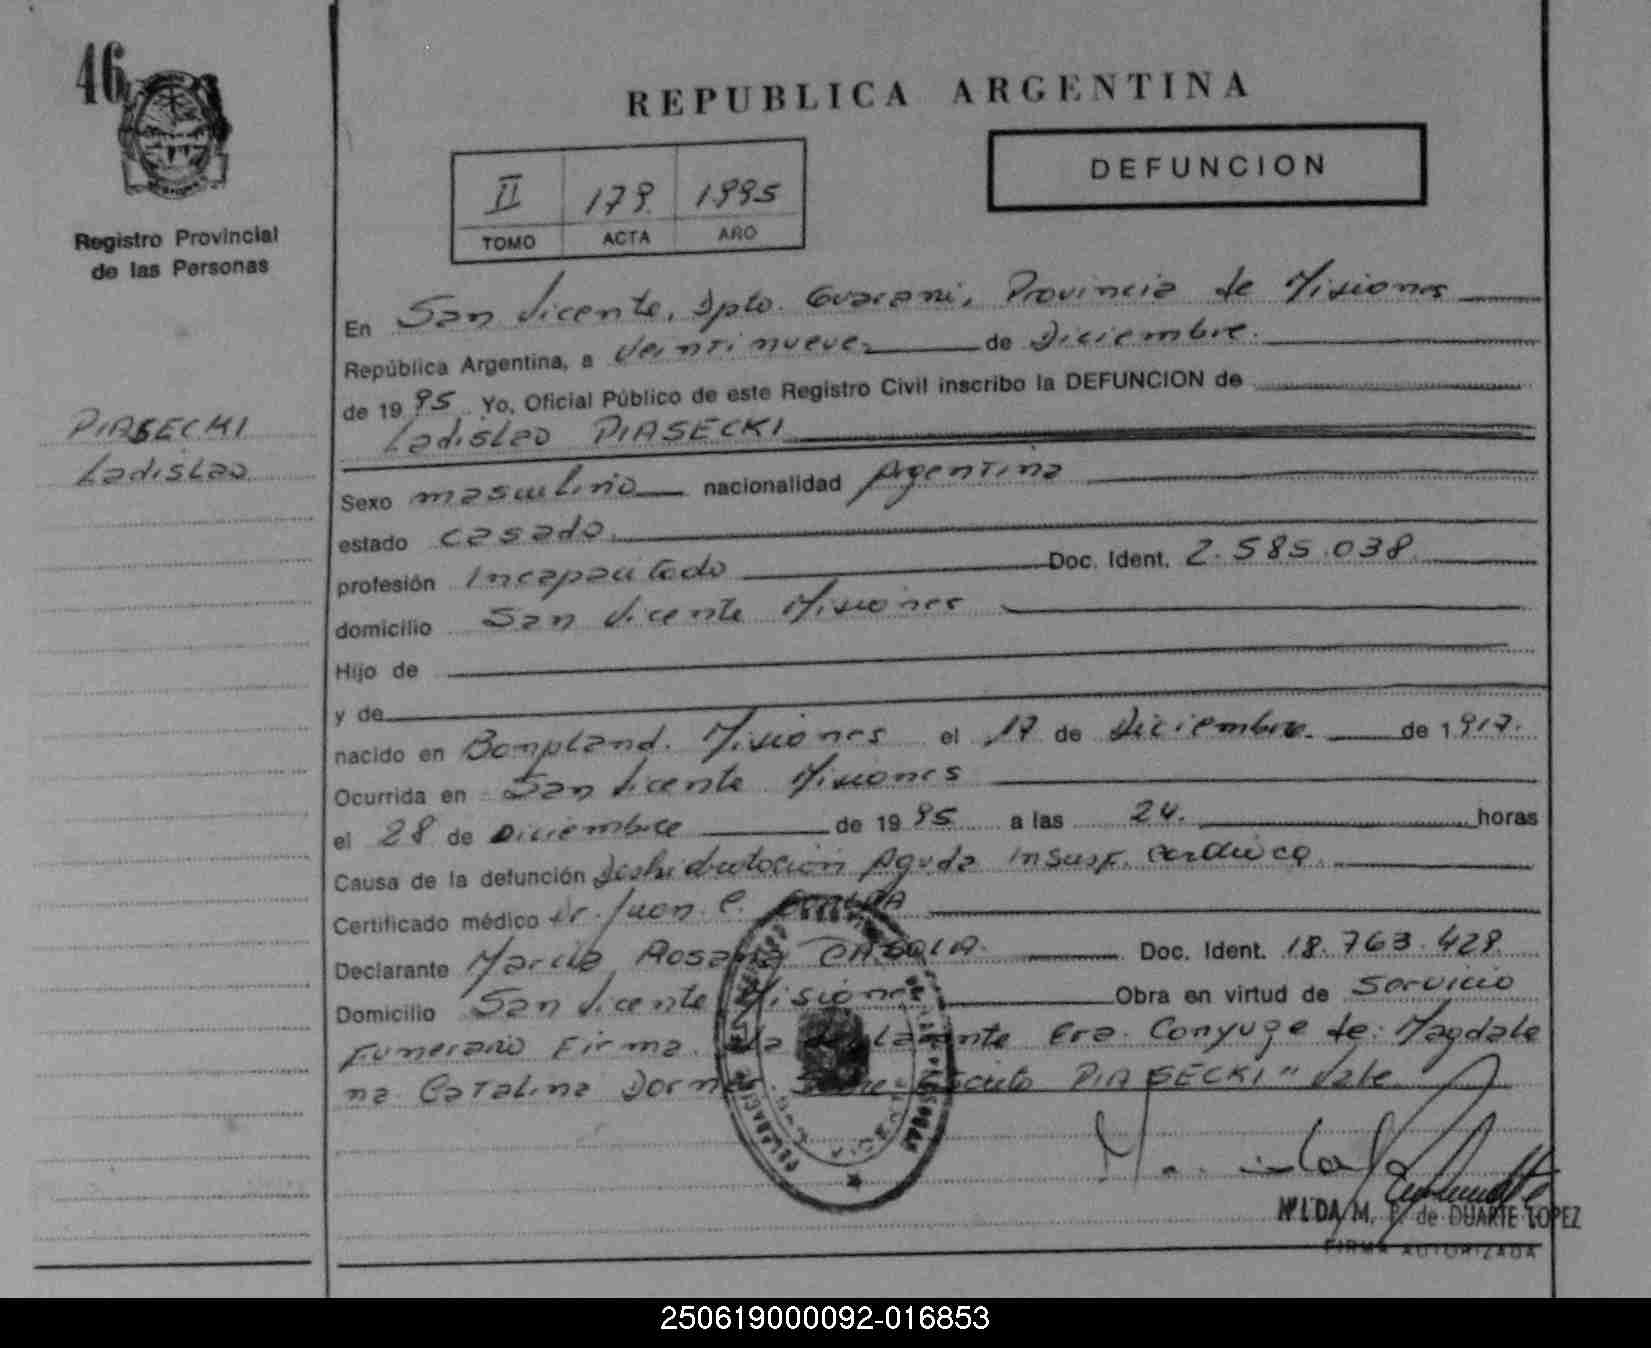 46
REPUBLICA ARGENTINA
DEFUNCION
II 179 1995
TOMO ACTA AÑO
Registro Provincial
de las Personas
PIASECKI
Ladislao
En San Vicente, Dpto. Guarani, Provincia de Misiones
República Argentina, a Veintinueve de Diciembre
de 1995 Yo, Oficial Público de este Registro Civil inscribo la DEFUNCION de
Ladislao PIASECKI
Sexo masculino nacionalidad Argentina
estado casado
profesión Incapacitado Doc. Ident. 2.585.038
domicilio San Vicente Misiones
Hijo de
y de
nacido en Bonpland. Misiones el 17 de Diciembre de 1917.
Ocurrida en San Vicente Misiones
el 28 de Diciembre de 1995 a las 24. horas
Causa de la defunción Deshidratación Aguda Insuf. Cardiaca
Certificado médico Dr. Juan C.
Declarante Marcia Rosana Doc. Ident. 18.763.428
Domicilio San Vicente Misiones Obra en virtud de Servicio
Funerario Firma la declarante Era Conyuge de: Magdale
na Catalina PIASECKI" Vale
NILDA M. P. de DUARTE LOPEZ
FIRMA AUTORIZADA
250619000092-016853